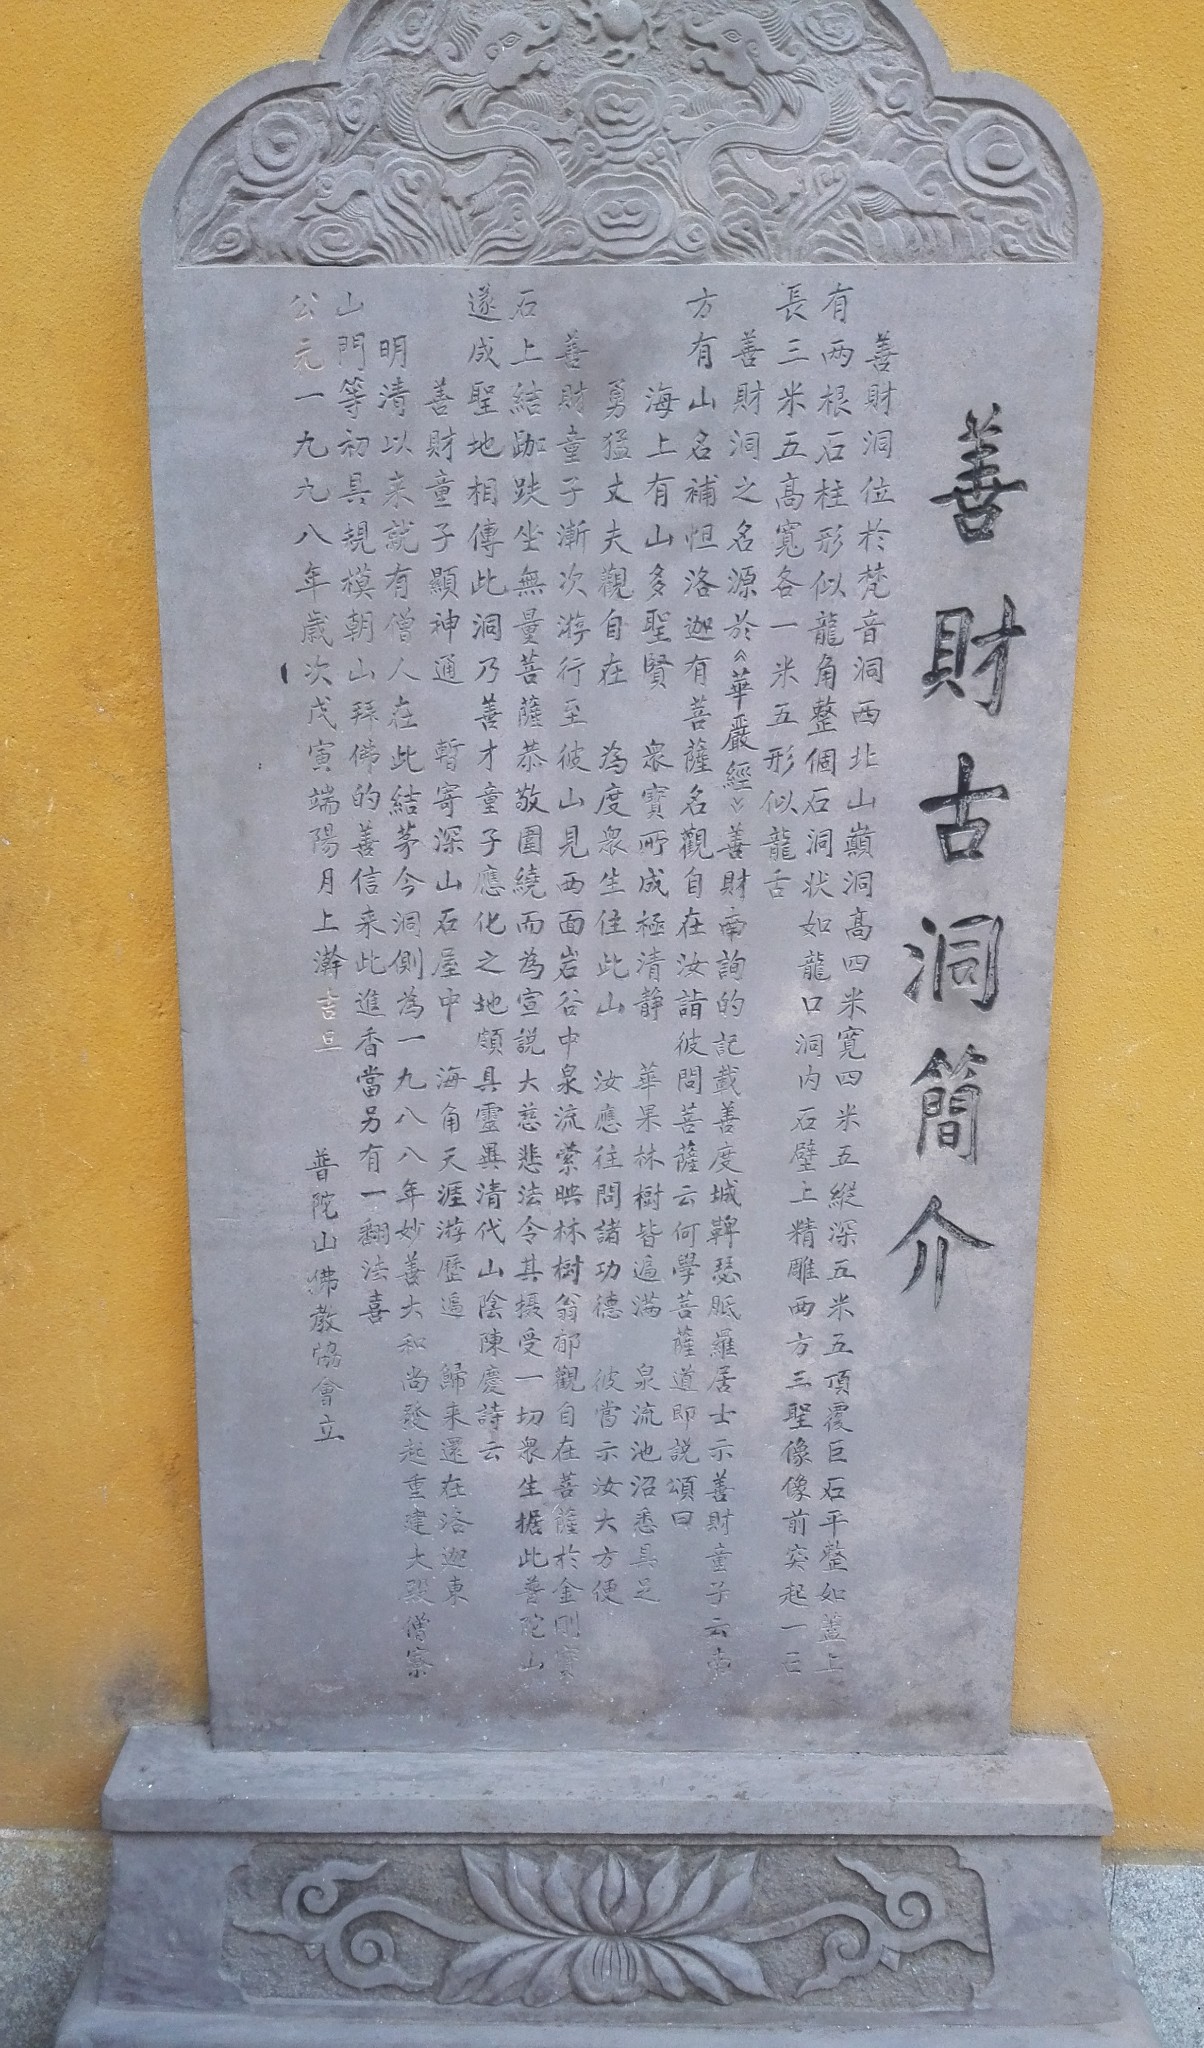 善財古洞簡介
善財洞位於梵音洞西北山巔洞高四米寬四米五縱深五米五頂覆巨石平整如蓋上
有兩根石柱形似龍角整個石洞狀如龍口洞内石壁上精雕西方三聖像像前突起一石
長三米五高寬各一米五形似龍舌
善財洞之名源於《華嚴經》善財南詢的記載善度城鞞瑟胝羅居士示善財童子云南
方有山名補怛洛迦有菩薩名觀自在汝詣彼問菩薩云何學菩薩道即説頌曰
海上有山多聖賢 衆寶所成極清静 華果林樹皆遍滿 泉流池沼悉具足
勇猛丈夫觀自在 為度衆生住此山 汝應往問諸功德 彼當示汝大方便
善財童子漸次游行至彼山見西面岩谷中泉流縈映林樹蓊郁觀自在菩薩於金剛寶
石上結跏趺坐無量菩薩恭敬圍繞而為宣説大慈悲法令其攝受一切衆生據此普陀山
遂成聖地相傳此洞乃善才童子應化之地頗具靈異清代山陰陳慶詩云
善財童子顯神通 暫寄深山石屋中 海角天涯游歷遍 歸来還在洛迦東
明清以来就有僧人在此結茅今洞側為一九八八年妙善大和尚發起重建大殿僧寮
山門等初具規模朝山拜佛的善信来此進香當另有一翻法喜
公元一九九八年歲次戊寅端陽月上澣吉旦 普陀山佛教協會立